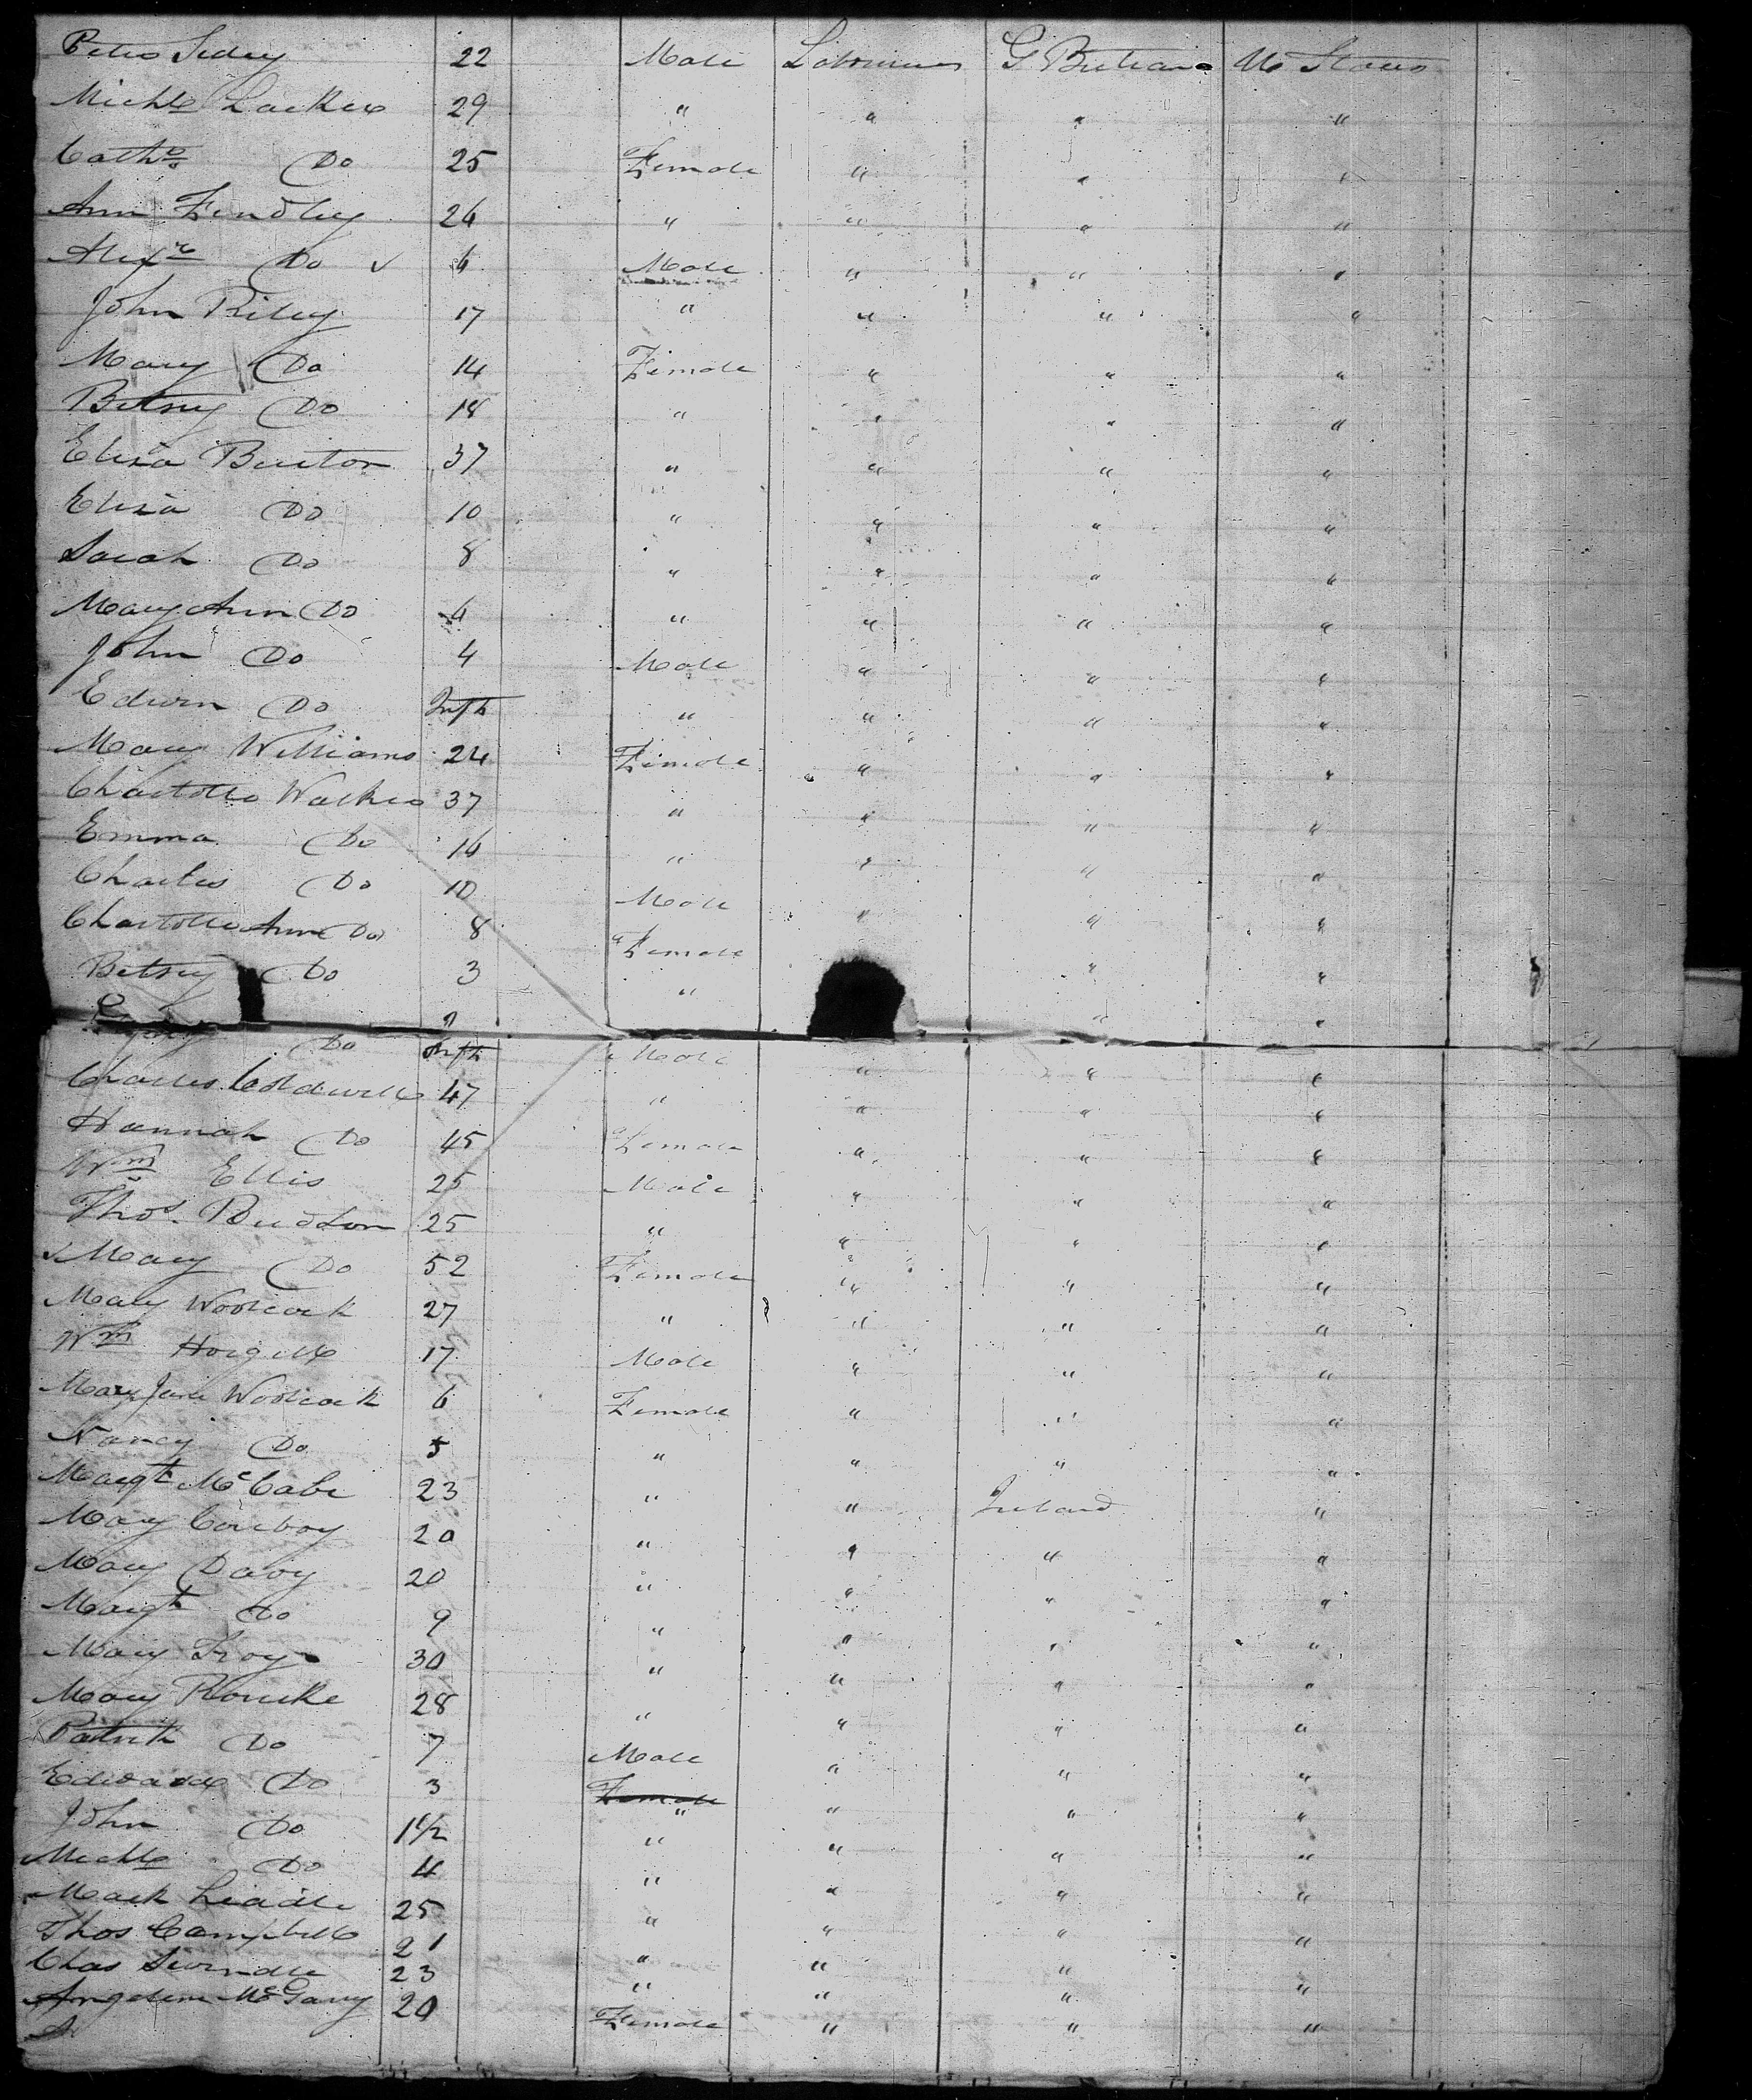 Peter Sedey 22 Male Labourers G Britain U States
Michl 29 " " " "
Cath Do 25 Female " " "
Ann Findley 26 " " " "
Alexr Do 6 Male " " "
John Riley 17 " " " "
Mary Do 14 Female " " "
Betsey Do 18 " " " "
Eliza Buxton 37 " " " "
Eliza Do 10 " " " "
Sarah Do 8 " " " "
Mary Ann Do 6 " " " "
John Do 4 Male " " "
Edwin Do Inft " " " "
Mary Williams 24 Female " " "
Charlotte Walker 37 " " " "
Emma Do 16 " " " "
Charles Do 10 Male " " "
Charlotte Ann Do 8 Female " "
Betsey Do 3 " " "
Do Inft Male " " "
Charles Coldwell 47 " " " "
Hannah Do 45 Female " " "
Wm Ellis 25 Male " " "
Thos. 25 " " " "
Mary Do 52 Female " " "
Mary Woolcock 27 " " " "
Wm 17 Male " " "
Mary Jane Woolcock 6 Female " " "
Nancy Do 5 " " " "
Margt McCabe 23 " " Ireland "
Mary Conboy 20 " " " "
Mary Davy 20 " " " "
Margt Do 9 " " " "
Mary Troy 30 " " " "
Mary Rourke 28 " " " "
Patrick Do 7 Male " " "
Edward Do 3 Female " " " "
John Do 1½ " " " "
Michl Do 4 " " " "
Mark Liddle 25 " " " "
Thos Campbell 21 " " " "
Chas Swindle 23 " " " "
Angeline McGarry 20 Female " " "